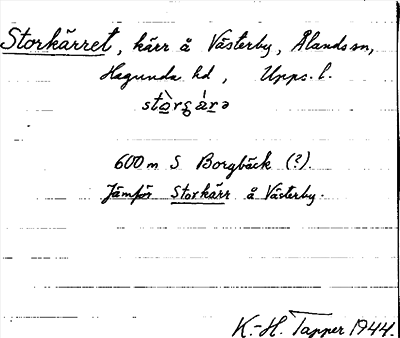 Storkärret, kärr å Västerby, Ålands sn,
Hagunda hd, Upps. l.
600 m S Borgbäck (?).
Jämför Storkärr å Västerby.
K.-H. Tapper 1944.